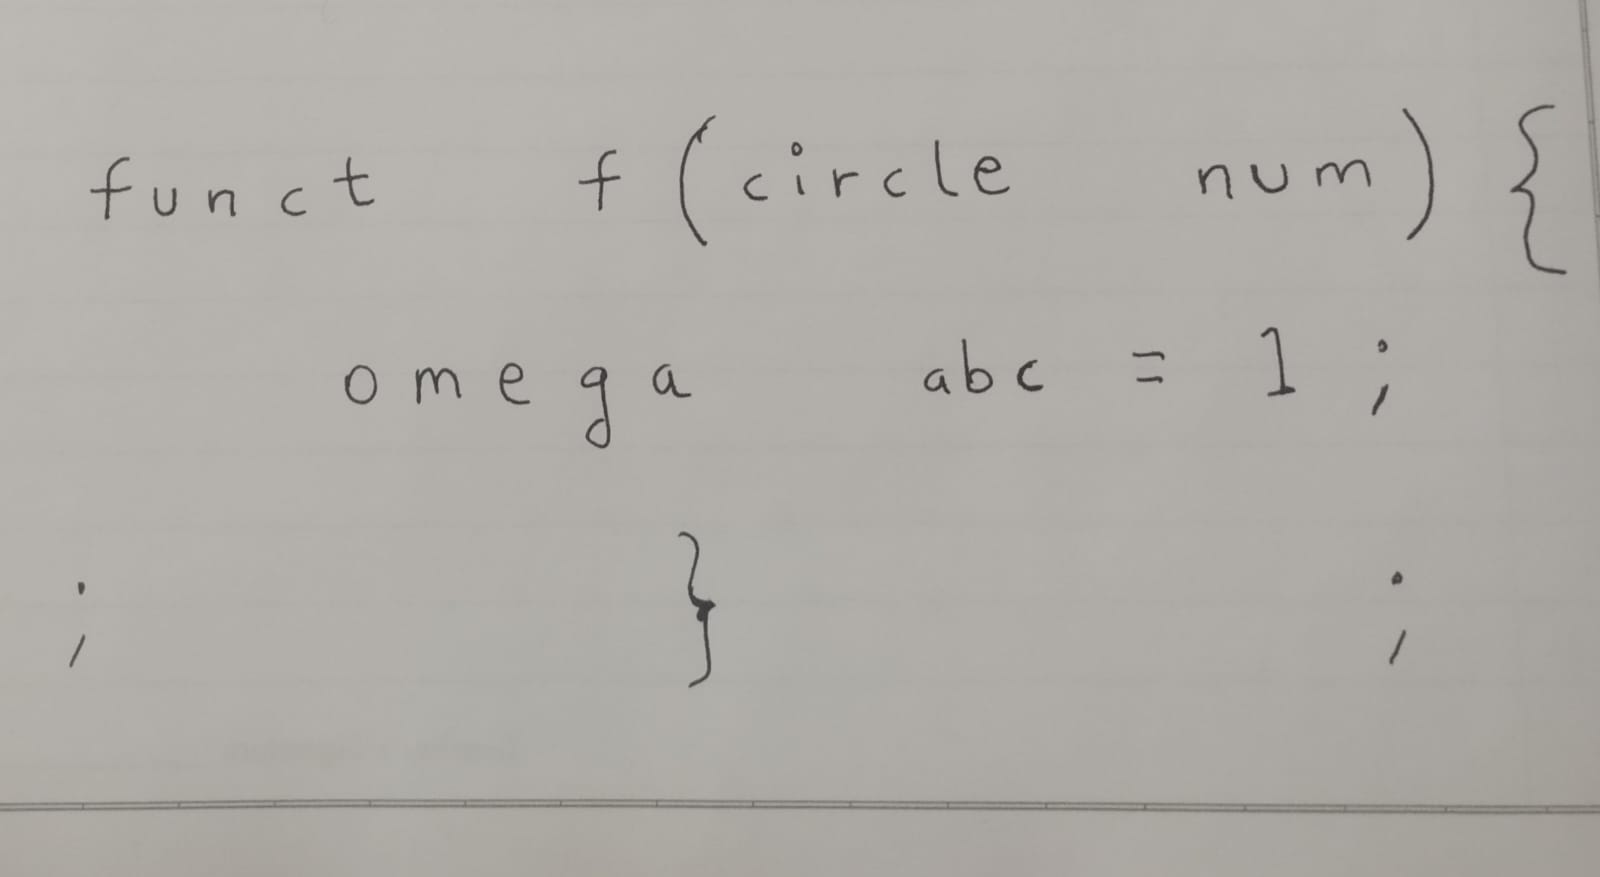 funct f(circle num){
omega abc = 1;
; } ;